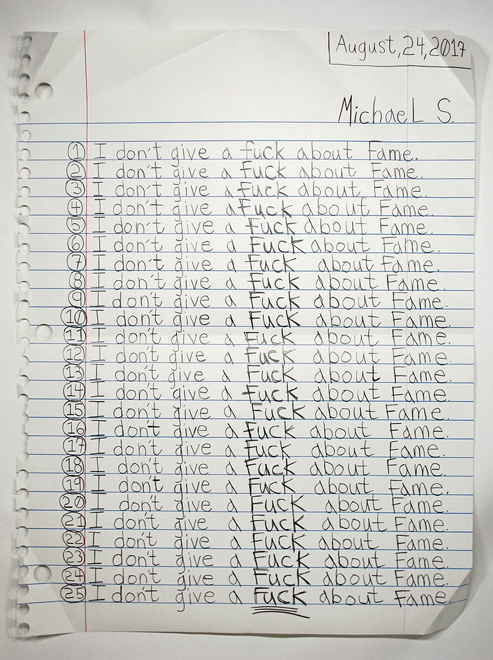 August, 24, 2017
MichaeL S.
1 I don't give a fuck about Fame.
2 I don't give a fuck about Fame.
3 I don't give a fuck about Fame.
4 I don't give a Fuck about Fame.
5 I don't give a fuck about Fame.
6 I don't give a Fuck about Fame.
7 I don't give a Fuck about Fame.
8 I don't give a Fuck about Fame.
9 I don't give a Fuck about Fame.
10 I don't give a Fuck about Fame.
11 I don't give a Fuck about Fame.
12 I don't give a Fuck about Fame.
13 I don't give a Fuck about Fame.
14 I don't give a fuck about Fame.
15 I don't give a Fuck about Fame.
16 I don't give a fuck about Fame.
17 I don't give a Fuck about Fame.
18 I don't give a Fuck about Fame.
19 I don't give a Fuck about Fame.
20 I don't give a Fuck about Fame.
21 I don't give a Fuck about Fame.
22 I don't give a Fuck about Fame.
23 I don't give a Fuck about Fame.
24 I don't give a Fuck about Fame.
25 I don't give a Fuck about Fame.